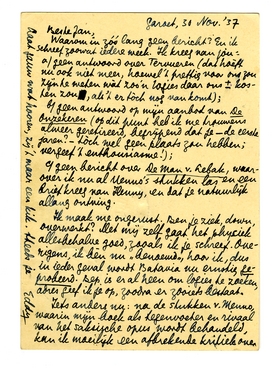 Garoet, 30 Nov. '37
Beste Jan,
Waarom in zóó lang geen bericht? En ik
schreef zoowat iedere week. Ik kreeg van jou:
a/ geen antwoord over Terwuren (dat hoeft
nu ook niet meer, hoewel 't prettig voor ons zou
zijn te weten wat zoo'n logies daar ons ± kos-
ten zou, als 't er toch nog van komt);
b/ geen antwoord op mijn aanbod van De
Onzekeren (op dit punt heb ik me trouwens
alweer geretireerd, begrijpend dat je – de eerste
jaren? – toch wel geen plaats zou hebben;
vergeef 't enthousiasme!);
c/ geen bericht over De Man v. Lebak, waar-
over ik nu al Menno's stukken las en een
brief kreeg van Henny, en dat je natuurlijk
allang ontving.
Ik maak me ongerust. Ben je ziek, down,
overwerkt? Met mij zelf gaat het physiek
allesbehalve goed, zooals ik je schreef. Ove-
rigens, ik ben nu "benoemd", hoor ik, dus
in ieder geval wordt Batavia nu ernstig ge-
probeerd. Bep is er al heen om logies te zoeken,
adres geef ik je op, zoodra er zooiets bestaat.
Iets anders nu: na de stukken v. Menno,
waarin mijn boek als tegenvoeter en rivaal
van het saksische opus wordt behandeld,
kan ik moeilijk een afbrekende kritiek over